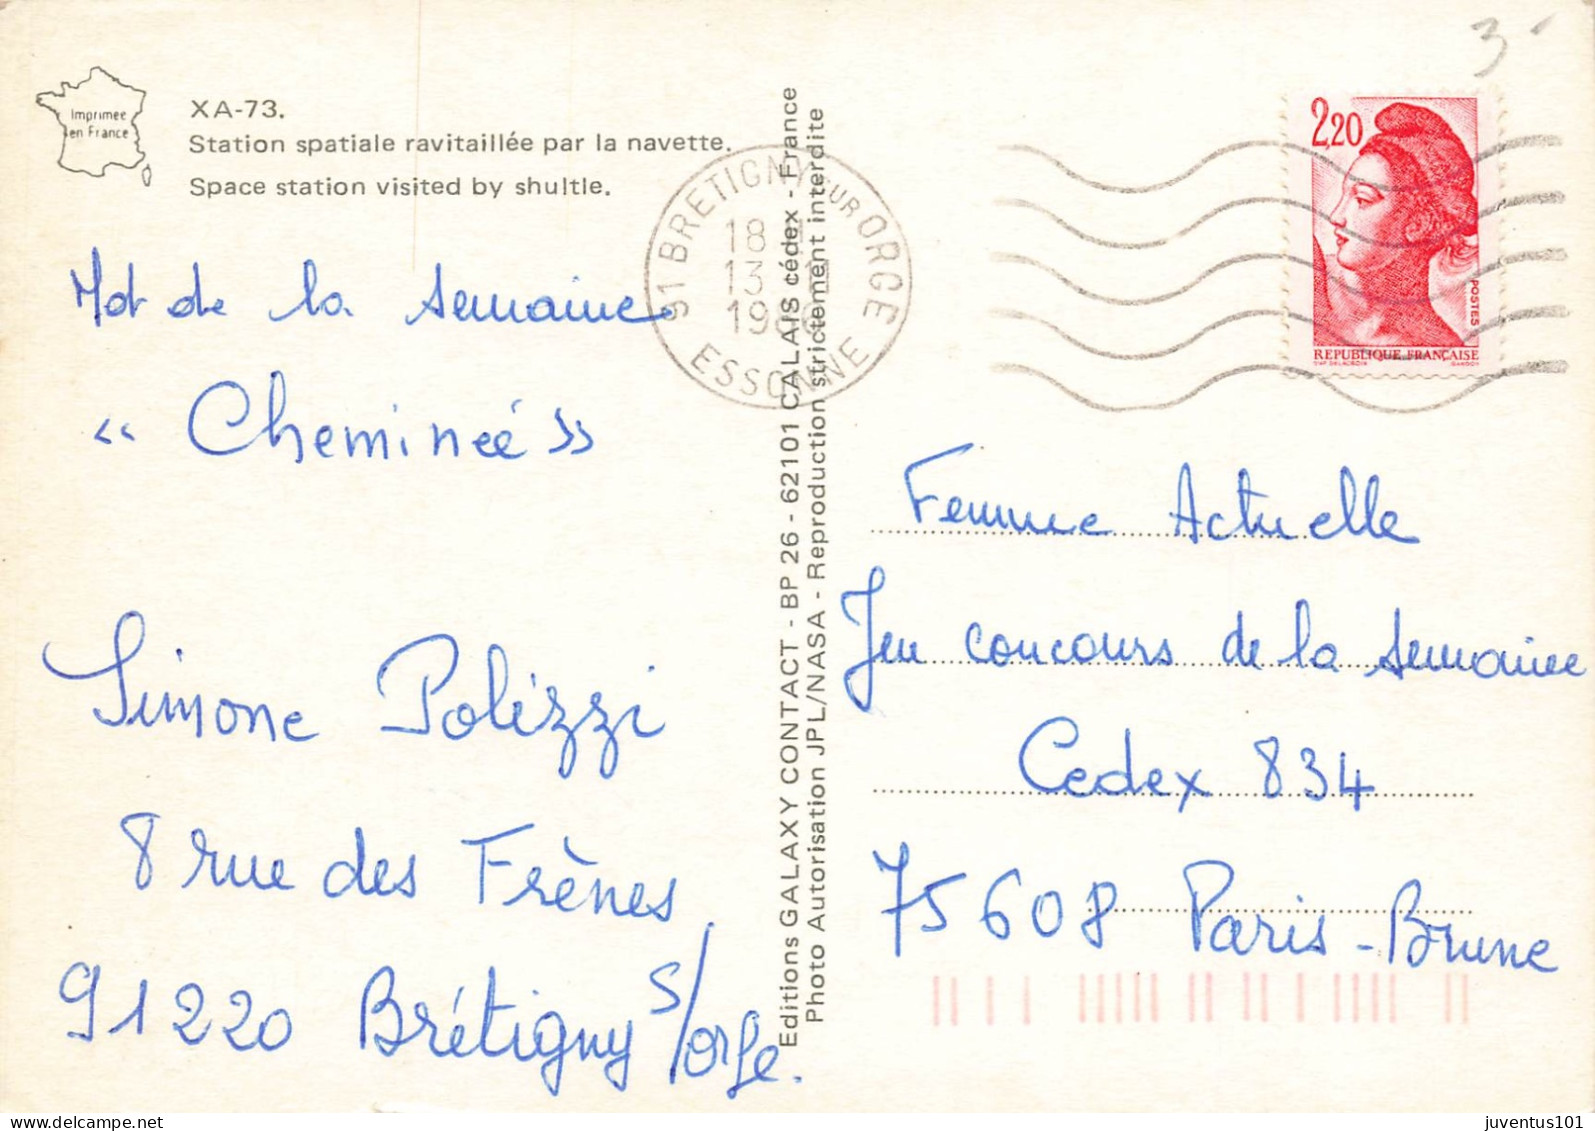 Imprimée
en France
XA-73.
Station spatiale ravitaillée par la navette.
Space station visited by shultle.
Mot de la semaine
« Cheminée »
Simone Polizzi
8 rue des Frênes
91220 Brétigny s/orge.
Editions GALAXY CONTACT - BP 26 - 62101 CALAIS cédex - France
Photo Autorisation JPL/NASA - Reproduction strictement interdite
91 BRETIGNY SUR ORGE
18
13
ESSONNE
3
2,20
POSTES
REPUBLIQUE FRANÇAISE
GANDON
Femme Actuelle
Jeu concours de la semaine
Cedex 834
75608 Paris-Brune
juventus101